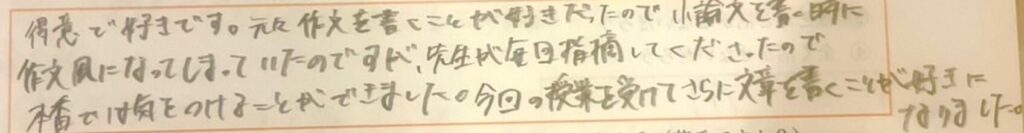 得意で好きです。元々作文を書くことが好きだったので小論文を書く時に
作文風になってしまっていたのですが、先生が毎回指摘してくださったので
本番では気をつけることができました。今回の授業を受けてさらに文章を書くことが好きに
なりました。